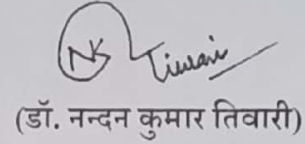 NK Tiwari
(डॉ. नन्दन कुमार तिवारी)